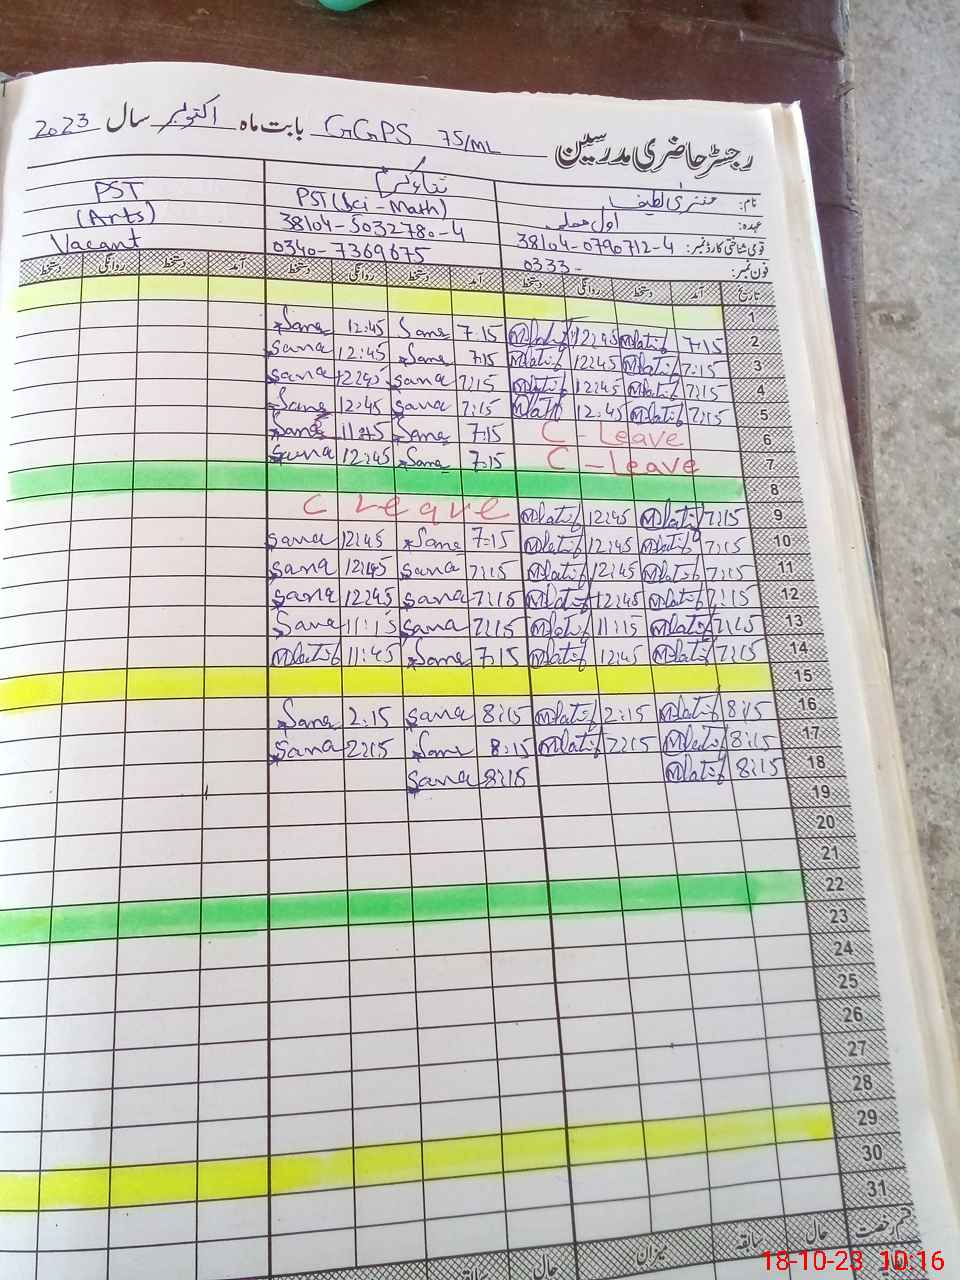 رجسٹر حاضری مدرسین GGPS 75/ML بابت ماہ اکتوبر سال 2023
نام:
عہدہ: اول معلمہ PST (Sci-Math) PST (Arts)
قومی شناختی کارڈ نمبر: 38104-0790712-4 38104-5032780-4 Vacant
فون نمبر: 0333- 0340-7369675
تاریخ آمد دستخط روانگی دستخط آمد دستخط روانگی دستخط آمد دستخط روانگی دستخط
1
2 7:15 Mlatif 12:45 7:15 Sana 12:45 Sana
3 7:15 Mlatif 12:45 Mlatif 7:15 Sana 12:45 Sana
4 7:15 Mlatif 12:45 Mlatif 7:15 Sana 12:45 Sana
5 7:15 Mlatif 12:45 Mlatif 7:15 Sana 12:45 Sana
6 C-Leave 7:15 Sana 11:45 Sana
7 C-leave 7:15 Sana 12:45 Sana
8
9 7:15 Mlatif 12:45 Mlatif C Leave
10 7:15 Mlatif 12:45 Mlatif 7:15 Sana 12:45 Sana
11 7:15 Mlatif 12:45 Mlatif 7:15 Sana 12:45 Sana
12 7:15 Mlatif 12:45 Mlatif 7:15 Sana 12:45 Sana
13 7:15 Mlatif 11:15 Mlatif 7:15 Sana 11:15 Sana
14 7:15 Mlatif 12:45 Mlatif 7:15 Sana 11:45 Mlatif
15
16 8:15 Mlatif 2:15 Mlatif 8:15 Sana 2:15 Sana
17 8:15 Mlatif 2:15 Mlatif 8:15 Sana 2:15 Sana
18 8:15 Mlatif 8:15 Sana
19
20
21
22
23
24
25
26
27
28
29
30
31
قسم رخصت حال سابقہ میزان حال سابقہ
18-10-23 10:16